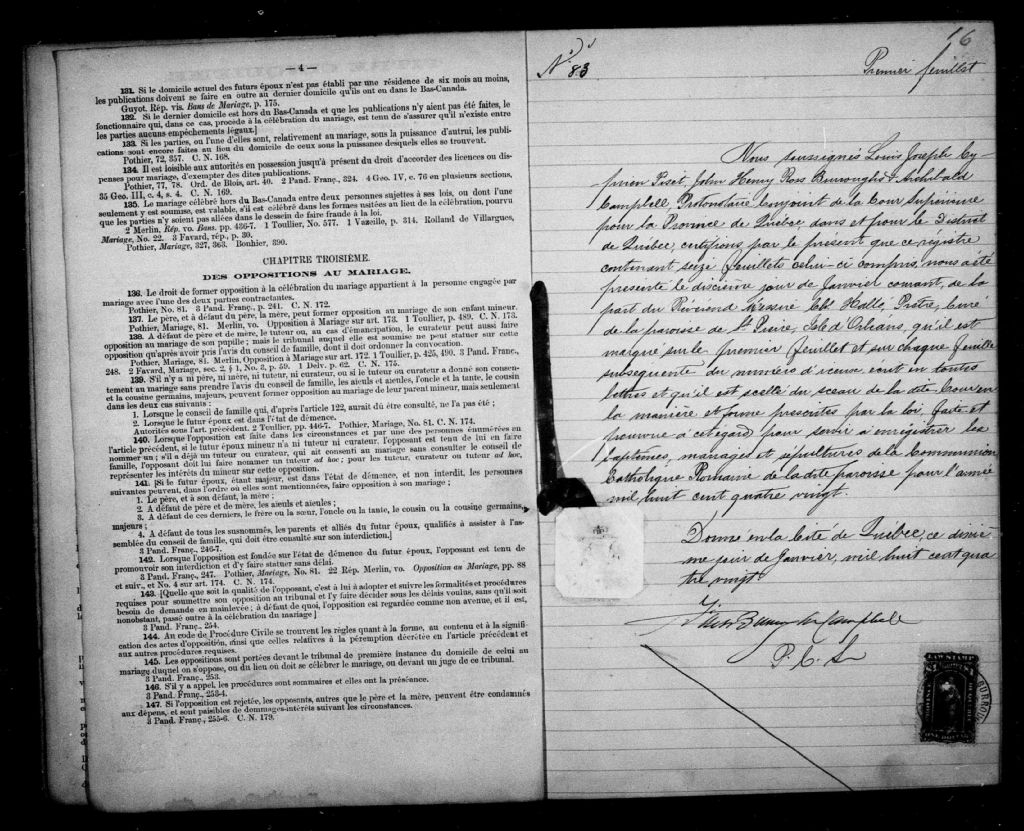 — 4 —
131. Si le domicile actuel des futurs époux n'est pas établi par une résidence de six mois au moins,
les publications doivent se faire en outre au dernier domicile qu'ils ont eu dans le Bas-Canada.
Guyot. Rép. vis. Bans de Mariage, p. 175.
132. Si le dernier domicile est hors du Bas-Canada et que les publications n'y aient pas été faites, le
fonctionnaire qui, dans ce cas, procède à la célébration du mariage, est tenu de s'assurer qu'il n'existe entre
les parties aucuns empêchements légaux.]
133. Si les parties, ou l'une d'elles sont, relativement au mariage, sous la puissance d'autrui, les publi-
cations sont encore faites au lieu du domicile de ceux sous la puissance desquels elles se trouvent.
Pothier, 72, 357. C. N. 168.
134. Il est loisible aux autorités en possession jusqu'à présent du droit d'accorder des licences ou dis-
penses pour mariage, d'exempter des dites publications.
Pothier, 77, 78. Ord. de Blois, art. 40. 2 Pand. Franç., 324. 4 Geo. IV, c. 76 en plusieurs sections,
35 Geo. III, c. 4, s. 4. C. N. 169.
135. Le mariage célébré hors du Bas-Canada entre deux personnes sujettes à ses lois, ou dont l'une
seulement y est soumise, est valable, s'il est célébré dans les formes usitées au lieu de la célébration, pourvu
que les parties n'y soient pas allées dans le dessein de faire fraude à la loi.
2 Merlin, Rép. vo. Bans. pp. 436-7. 1 Toullier, No. 577. 1 Vazeille, p. 314. Rolland de Villargues,
Mariage, No. 22. 3 Favard, rép., p. 30.
Pothier, Mariage, 327, 363. Bouhier, 390.
CHAPITRE TROISIÈME.
DES OPPOSITIONS AU MARIAGE.
136. Le droit de former opposition à la célébration du mariage appartient à la personne engagée par
mariage avec l'une des deux parties contractantes.
Pothier, No. 81. 3 Pand. Franç., p. 241. C. N. 172.
137. Le père, et à défaut du père, la mère, peut former opposition au mariage de son enfant mineur.
Pothier, Mariage, 81. Merlin, vo. Opposition à Mariage sur art. 173. 1 Toullier, p. 489. C. N. 173.
138. A défaut de père et de mère, le tuteur ou, au cas d'émancipation, le curateur peut aussi faire
opposition au mariage de son pupille; mais le tribunal auquel elle est soumise ne peut statuer sur cette
opposition qu'après avoir pris l'avis du conseil de famille, dont il doit ordonner la convocation.
Pothier, Mariage, 81. Merlin, Opposition à Mariage sur art. 172. 1 Toullier, p. 425, 490. 3 Pand. Franç.,
248. 2 Favard, Mariage, sec. 2, § 1, No. 3, p. 59. 1 Delv. p. 62. C. N. 175.
139. S'il n'y a ni père, ni mère, ni tuteur, ni curateur, ou si le tuteur ou curateur a donné son consen-
tement au mariage sans prendre l'avis du conseil de famille, les aïeuls et aïeules, l'oncle et la tante, le cousin
et la cousine germains, majeurs, peuvent former opposition au mariage de leur parent mineur, mais seulement
dans les deux cas suivants :
1. Lorsque le conseil de famille qui, d'après l'article 122, aurait dû être consulté, ne l'a pas été ;
2. Lorsque le futur époux est dans l'état de démence.
Autorités sous l'art. précédent. 2 Toullier, pp. 446-7. Pothier, Mariage, No. 81. C. N. 174.
140. Lorsque l'opposition est faite dans les circonstances et par une des personnes énumérées en
l'article précédent, si le futur époux mineur n'a ni tuteur ni curateur, l'opposant est tenu de lui en faire
nommer un ; s'il a déjà un tuteur ou curateur, qui ait consenti au mariage sans consulter le conseil de
famille, l'opposant doit lui faire nommer un tuteur ad hoc ; pour les tuteur, curateur ou tuteur ad hoc,
représenter les intérêts du mineur sur cette opposition.
141. [Si le futur époux, étant majeur, est dans l'état de démence, et non interdit, les personnes
suivantes peuvent, dans l'ordre où elles sont mentionnées, faire opposition à son mariage ;
1. Le père, et à son défaut, la mère ;
2. A défaut de père et de mère, les aïeuls et aïeules ;
3. A défaut de ces derniers, le frère ou la sœur, l'oncle ou la tante, le cousin ou la cousine germains,
majeurs ;
4. A défaut de tous les susnommés, les parents et alliés du futur époux, qualifiés à assister à l'as-
semblée du conseil de famille, qui doit être consulté sur son interdiction.]
3 Pand. Franç., 246-7.
142. Lorsque l'opposition est fondée sur l'état de démence du futur époux, l'opposant est tenu de
promouvoir son interdiction et d'y faire statuer sans délai.
3 Pand. Franç., 247. Pothier, Mariage, No. 81. 22 Rép. Merlin, vo. Opposition au Mariage, pp. 88
et suiv., et No. 4 sur art. 174. C. N. 174.
143. [Quelle que soit la qualité de l'opposant, c'est à lui à adopter et suivre les formalités et procédures
requises pour soumettre son opposition au tribunal et l'y faire décider sous les délais voulus, sans qu'il soit
besoin de demande en mainlevée ; à défaut de quoi, l'opposition est regardée comme non avenue, et il est,
nonobstant, passé outre à la célébration du mariage.]
3 Pand. Franç., 254.
144. Au code de Procédure Civile se trouvent les règles quant à la forme, au contenu et à la signifi-
cation des actes d'opposition, ainsi que celles relatives à la péremption décrétée en l'article précédent et
aux autres procédures requises.
145. Les oppositions sont portées devant le tribunal de première instance du domicile de celui au
mariage duquel on s'oppose, ou du lieu où doit se célébrer le mariage, ou devant un juge de ce tribunal.
3 Pand. Franç., 253.
146. S'il y a appel, les procédures sont sommaires et elles ont la préséance.
3 Pand. Franç., 253-4.
147. Si l'opposition est rejetée, les opposants, autres que le père et la mère, peuvent être condamnés
aux dépens, et sont paisibles de dommages-intérêts suivant les circonstances.
3 Pand. Franç., 255-6. C. N. 179.
16
No 83
Premier feuillet
Nous soussignés Louis Joseph Cy-
prien Fiset, John Henry Ross Burroughs & Archibald
Campbell Protonotaire Conjoint de la Cour Supérieure
pour la Province de Québec, dans et pour le District
de Québec, certifions par le présent que ce régistre
contenant seize feuillets celui-ci compris, nous a été
présenté le dixième jour de Janvier courant, de la
part du Révérend Messire Chs Hallé, Prêtre, Curé
de la paroisse de St Pierre, Isle d'Orléans, qu'il est
marqué sur le premier feuillet et sur chaque feuille
subséquente du numéro d'iceux, écrit en toutes
lettres et qu'il est scellé du sceau de la dite Cour en
la manière et forme prescrites par la loi, faite et
pourvue à cet égard pour servir à enregistrer les
baptêmes, mariages et sépultures de la Communion
Catholique Romaine de la dite paroisse pour l'année
mil huit cent quatre vingt.
Donné en la Cité de Québec, ce dixiè-
me jour de Janvier, mil huit cent qua
tre vingt.
Campbell
P. C. S.
LAW STAMP
ONE DOLLAR